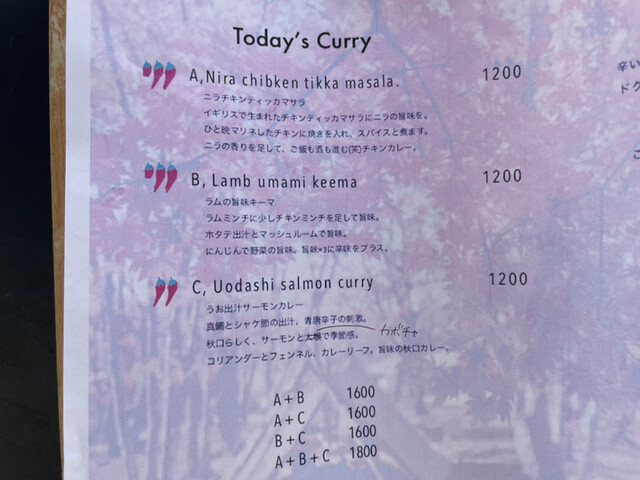 Today's Curry
A,Nira chibken tikka masala. 1200
ニラチキンティッカマサラ
イギリスで生まれたチキンティッカマサラにニラの旨味を。
ひと晩マリネしたチキンに焼きを入れ、スパイスと煮ます。
ニラの香りを足して、ご飯も酒も進む(笑)チキンカレー。
B, Lamb umami keema 1200
ラムの旨味キーマ
ラムミンチに少しチキンミンチを足して旨味。
ホタテ出汁とマッシュルームで旨味。
にんじんで野菜の旨味。旨味×3に辛味をプラス。
C, Uodashi salmon curry 1200
うお出汁サーモンカレー
真鯛とシャケ節の出汁、青唐辛子の刺激。
秋口らしく、サーモンと大根で季節感。 カボチャ
コリアンダーとフェンネル、カレーリーフ。旨味の秋口カレー。
A+B 1600
A+C 1600
B+C 1600
A+B+C 1800
辛い
ドク